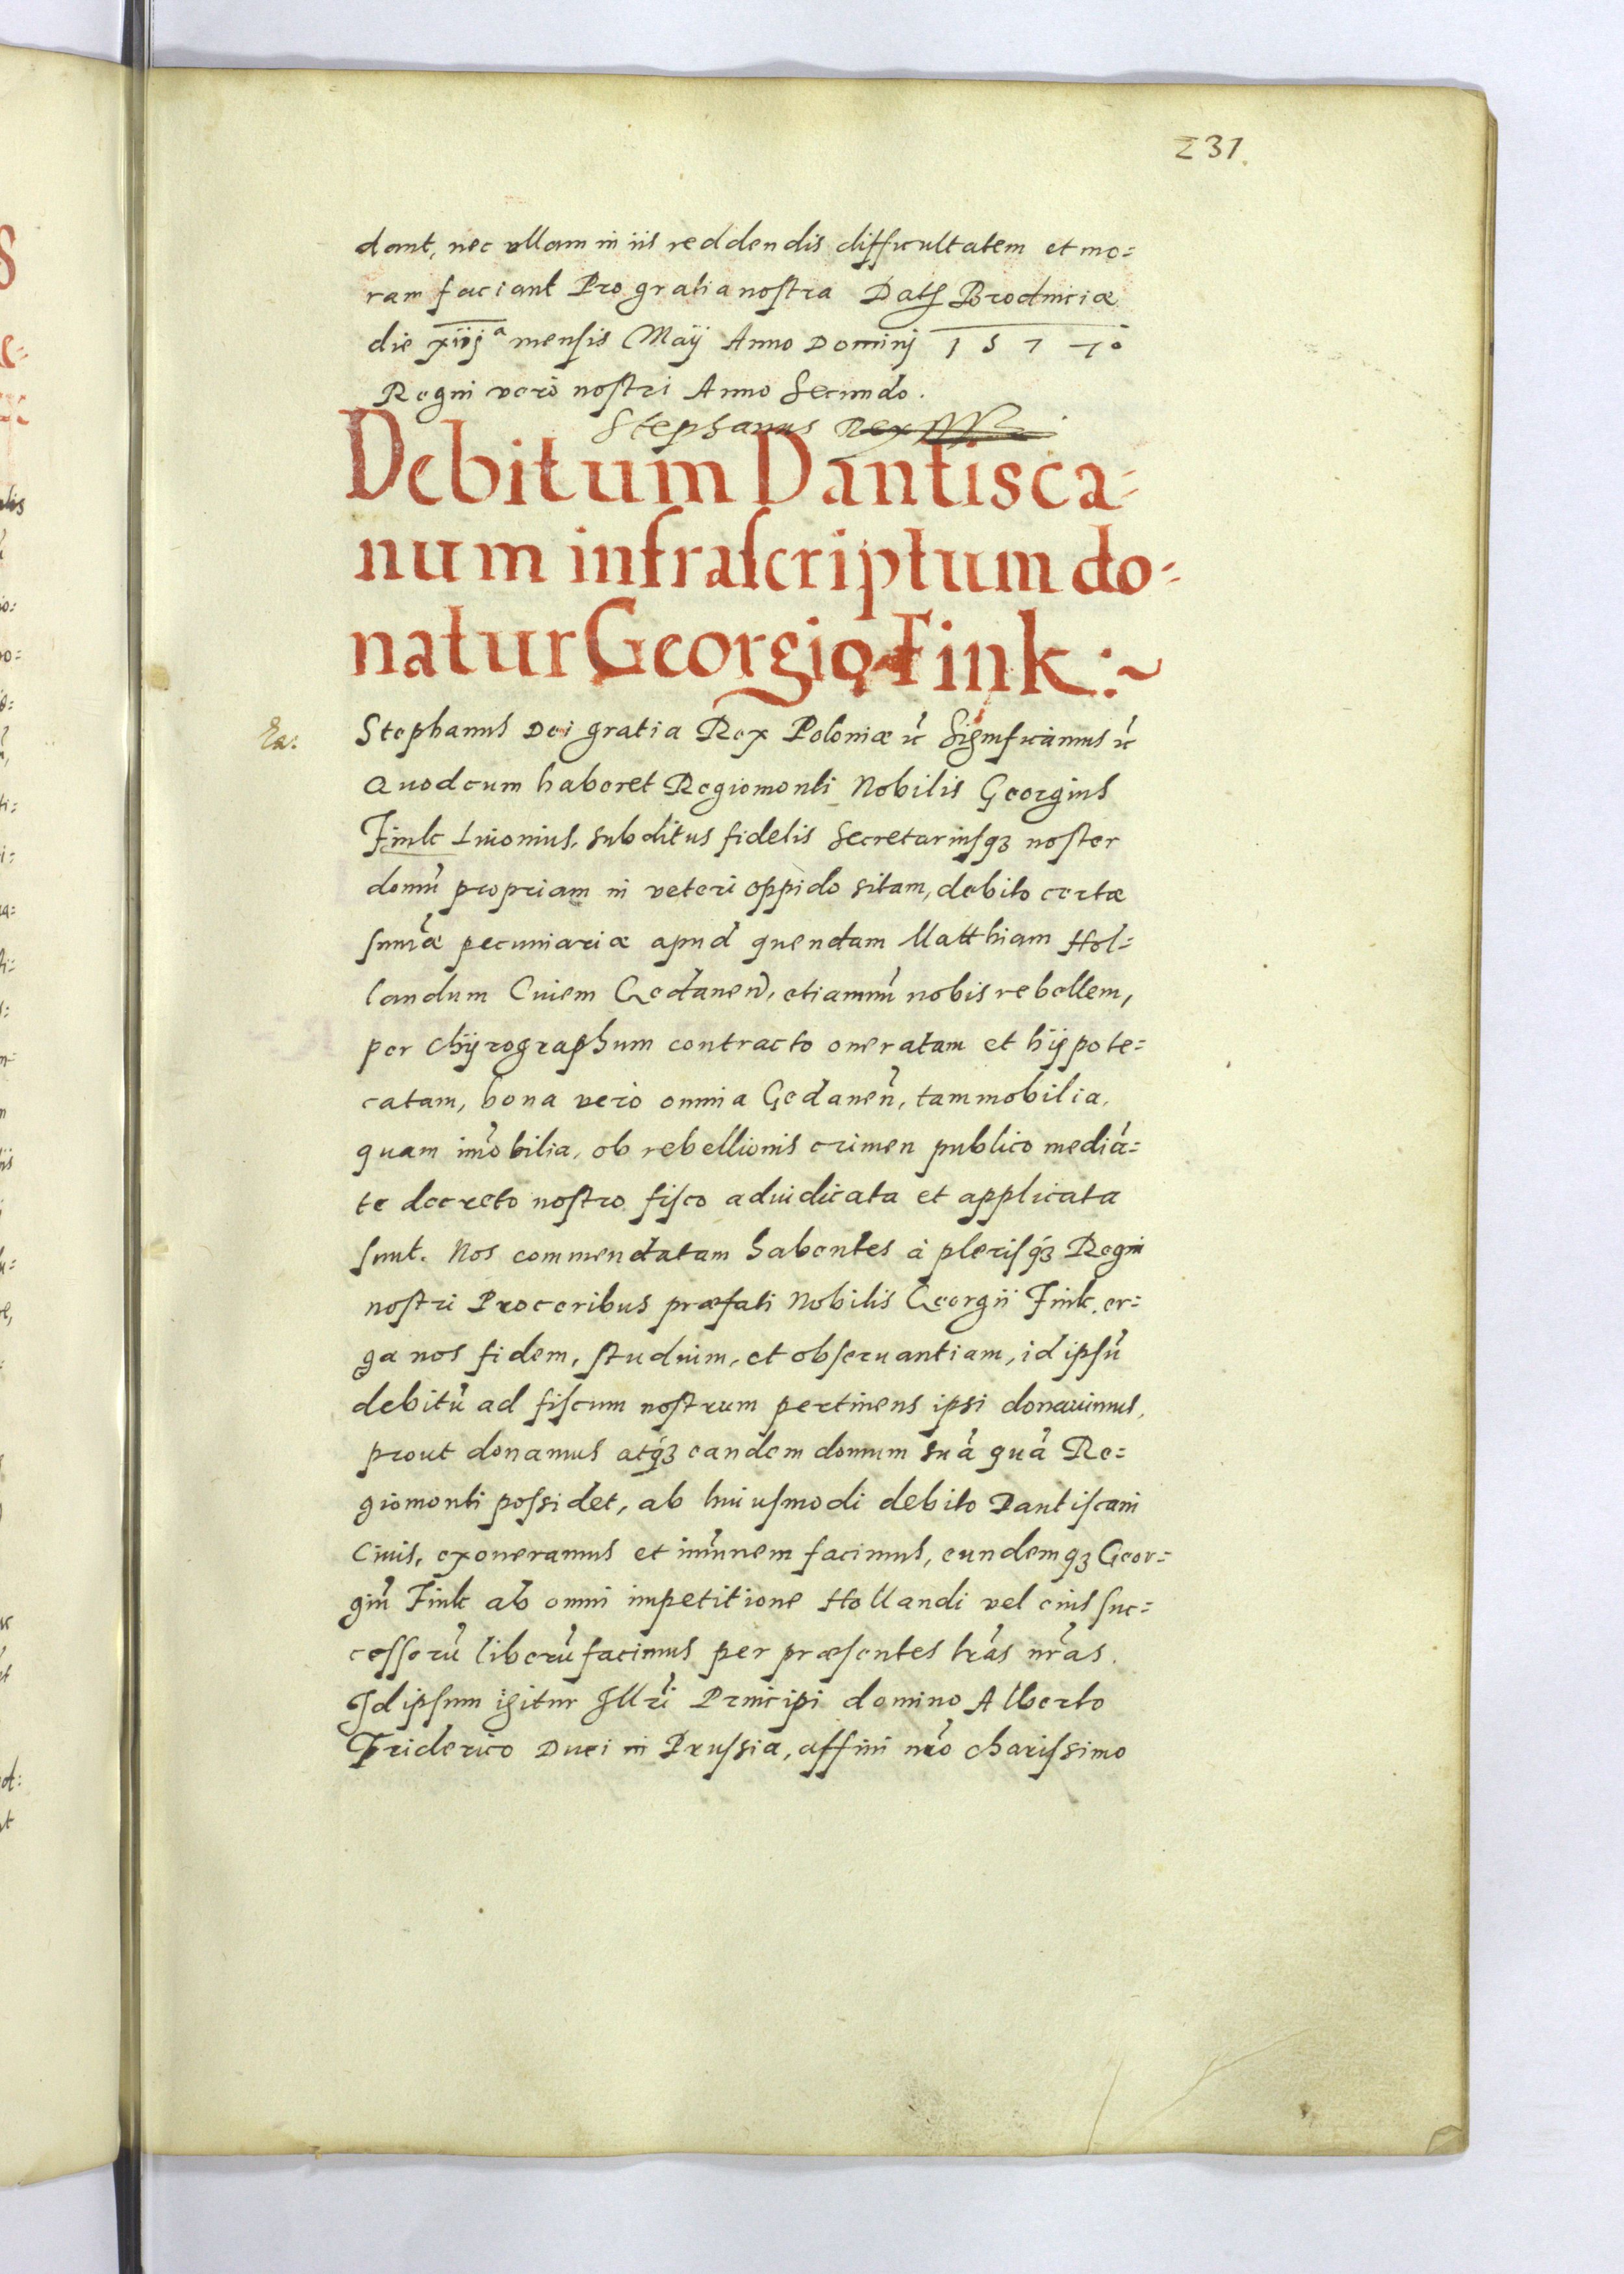 231.
dant, nec vllam in iis reddendis difficultatem et mo=
ram faciant Pro gratia nostra Datꝭ Brodniciæ
die xiiijª mensis Maÿ Anno Dominj 1577º
Regni verò nostri Anno Secundo.
Stephanus Rex
Debitum Dantisca=
num infrascriptum do=
natur Georgio Fink :~
Stephanus Dei gratia Rex Poloniæ ĩc Significamus ĩc
Quod cum haberet Regiomonti Nobilis Georgius
Fink Liuonius, subditus fidelis Secretariusqꝫ noster
domũ propriam in veteri oppido sitam, debito certæ
sum̃æ pecuniariæ apud quendam Matthiam Hol=
landum Ciuem Gedaneñ, etiamnũ nobis rebellem,
per chÿrographum contracto oneratam et hÿpote=
catam, bona verò omnia Gedaneñ, tam mobilia,
quam im̃obilia, ob rebellionis crimen publico mediã=
te decreto nostro fisco adiudicata et applicata
sunt. Nos commendatam habentes à plerisqꝫ Regni
nostri Proceribus præfati Nobilis Georgii Fink, er=
ga nos fidem, studium, et obseruantiam, id ipsũ
debitũ ad fiscum nostrum pertinens ipsi donauimus,
prout donamus atqꝫ eandem domum suã quã Re=
giomonti possidet, ab huiusmodi debito Dantiscani
Ciuis, exoneramus et im̃unem facimus, eundemqꝫ Geor=
giũ Fink ab omni impetitione Hollandi vel eius suc=
cessorũ liberũ facimus per præsentes lr̃as nr̃as.
Idipsum igitur Illr̃i Principi domino Alberto
Friderico Duci in Prussia, affini nr̃o charissimo